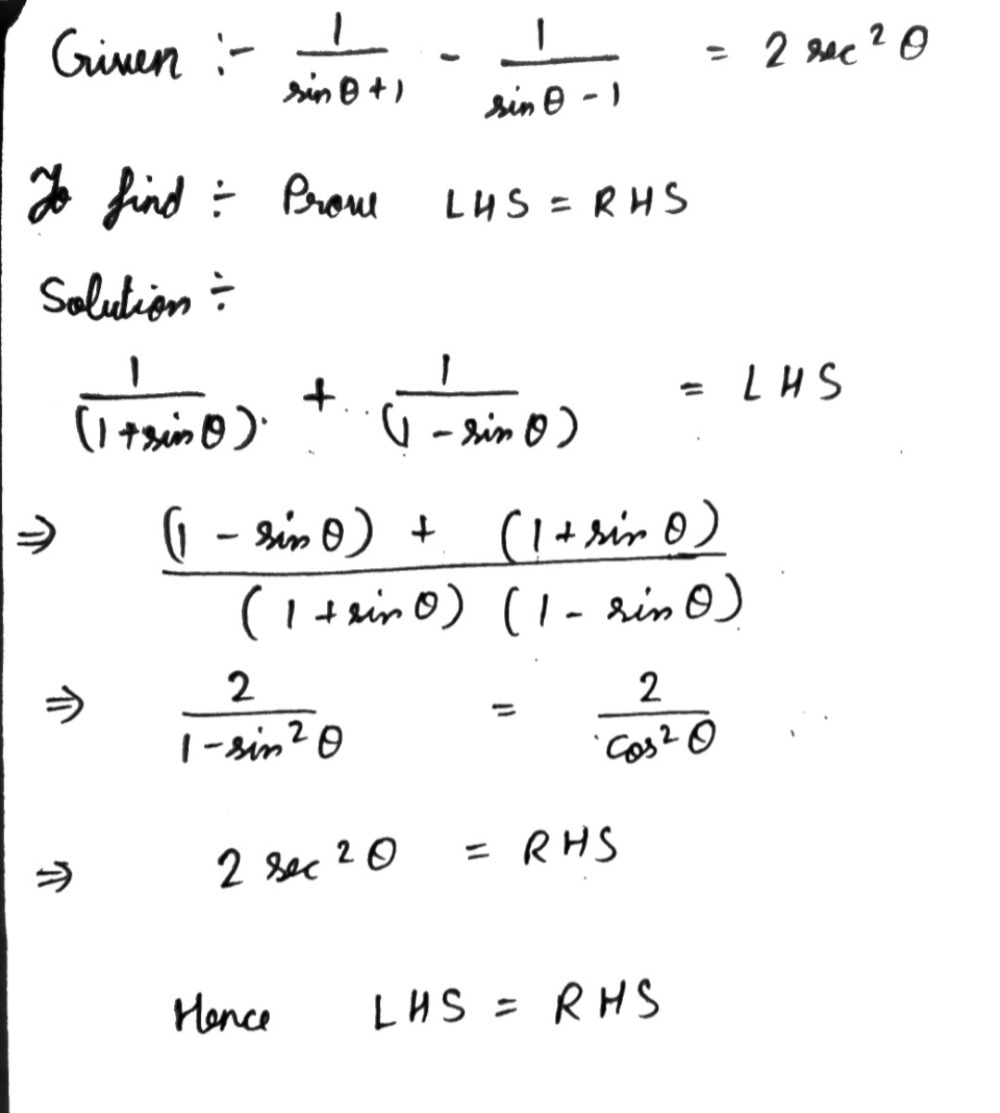 Given :- 1/(sin θ + 1) - 1/(sin θ - 1) = 2 sec² θ
To find ÷ Prove LHS = RHS
Solution ÷
1/(1 + sin θ) + 1/(1 - sin θ) = LHS
⇒ ((1 - sin θ) + (1 + sin θ))/((1 + sin θ) (1 - sin θ))
⇒ 2/(1 - sin² θ) = 2/cos² θ
⇒ 2 sec² θ = RHS
Hence LHS = RHS